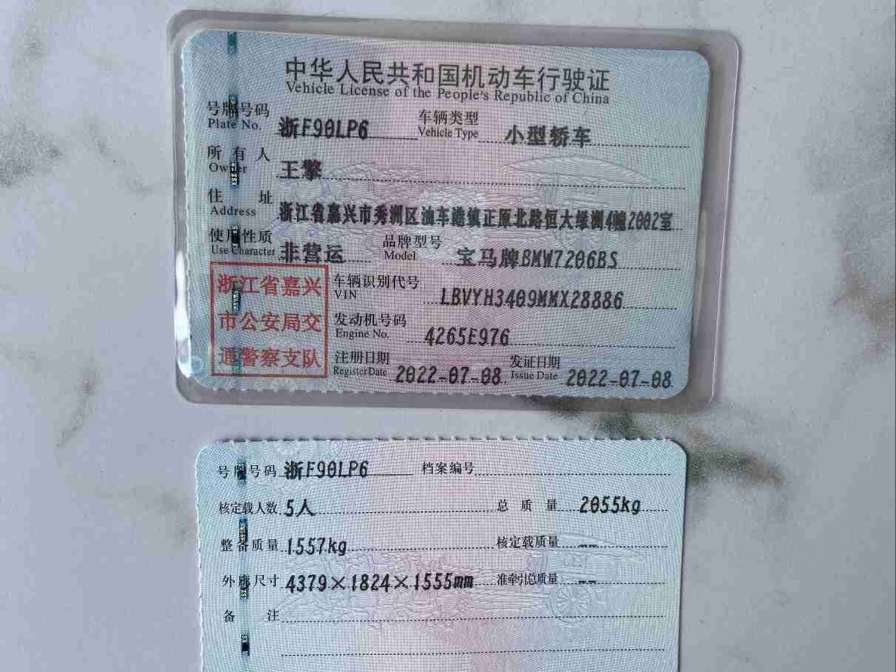 中华人民共和国机动车行驶证
Vehicle License of the People's Republic of China
号牌号码 浙F90LP6 车辆类型 小型轿车
Plate No. Vehicle Type
所有人 王擎
Owner
住址 浙江省嘉兴市秀洲区油车港镇正原北路恒大绿洲4幢2002室
Address
使用性质 非营运 品牌型号 宝马牌BMW7206BS
Use Character Model
浙江省嘉兴
市公安局交
通警察支队
车辆识别代号 LBVYH3409MMX28886
VIN
发动机号码 4265E976
Engine No.
注册日期 2022-07-08 发证日期 2022-07-08
Register Date Issue Date
号牌号码 浙F90LP6 档案编号
核定载人数 5人 总质量 2055kg
整备质量 1557kg 核定载质量 --
外廓尺寸 4379×1824×1555mm 准牵引总质量 --
备注